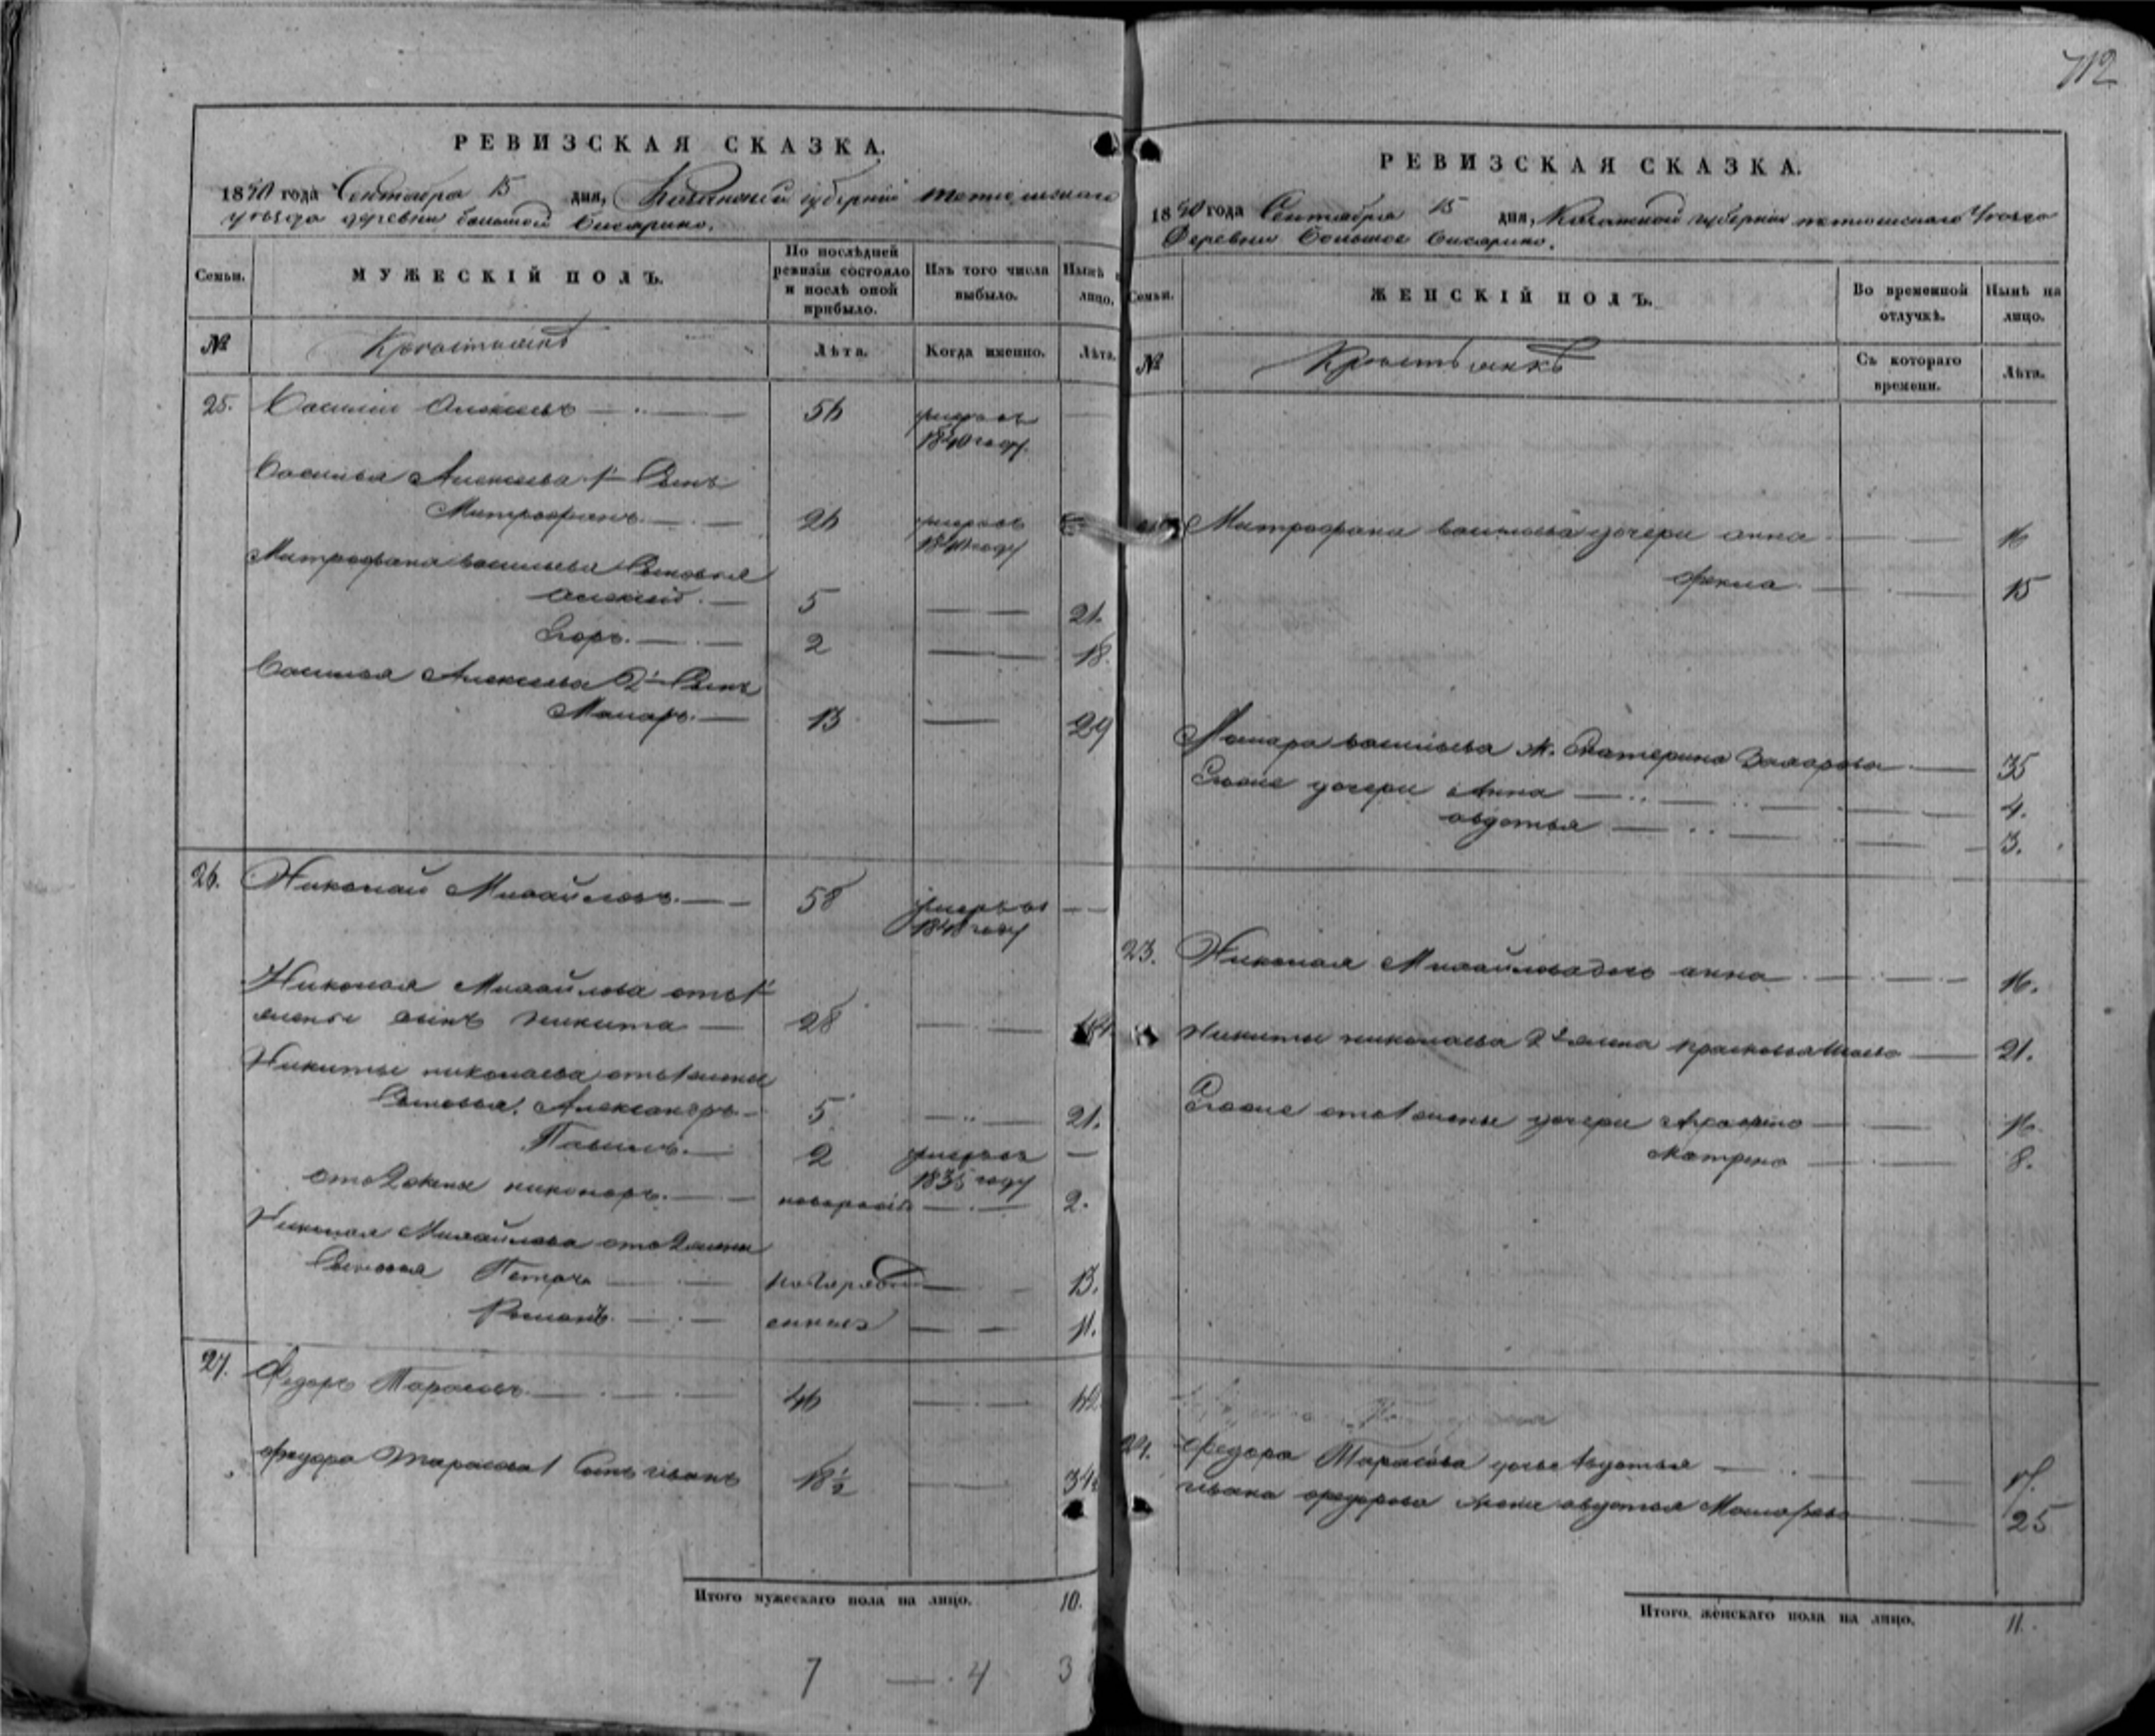 712
РЕВИЗСКАЯ СКАЗКА.
1850 года Сентября 15 дня, Казанской губернии тетюшскаго
уъзда деревни большой бисярино.
Семьи. МУЖЕСКІЙ ПОЛЪ. По послѣдней ревизіи состояло и послѣ оной прибыло. Изъ того числа выбыло. Нынѣ лицо.
№ Крестьянъ Лѣта. Когда именно. Лѣта.
25. Василий Алексеевъ — 56 умеръ въ —
1840 году.
Василья Алексеева 1й Сынъ
Митрофанъ — 26 умеръ въ
1841 году
Митрофана васильева Сыновья
алексей — 5 — 21.
Егоръ. — 2 — 18.
Василья Алексеева 2й Сынъ
Макаръ — 13 — 29
26. Николай Михайловъ — 58 умеръ въ —
1840 году
Николая Михайлова отъ 1й
жены сынъ никита — 28 — 44.
Никиты николаева отъ 1 жены
Сыновья, Александръ — 5 — 21.
Павелъ. — 2 умеръ въ —
1835 году
отъ 2 жены никоноръ. — новорож — 2.
Николая Михайлова отъ 2 жены
Сыновья Петръ — 13.
Романъ. — 11.
27. Федоръ Тарасовъ — 46 —
федора Тарасова 1 Сынъ иванъ 18½ — 34½
Итого мужескаго пола на лицо. 10.
7 — . 4 3
РЕВИЗСКАЯ СКАЗКА.
1850 года Сентября 15 дня, Казанской губернии тетюшскаго Уъзда
Деревни большое бисярино.
Семьи. ЖЕНСКІЙ ПОЛЪ. Во временной отлучкѣ. Нынѣ на лицо.
№ Крестьянкъ Съ котораго времени. Лѣта.
Митрофана васильева дочери анна — 16
фекла — 15
Макара васильева ж. Екатерина Захарова — 35
Егоже дочери Анна — 4.
авдотья — 3.
23. Николая Михайлова дочь анна — 16.
Никиты николаева 2я жена прасковья — 21.
Егоже отъ 1 жены дочери — 16.
Матрена — 8.
24. Федора Тарасова дочь Авдотья — 17.
ивана федорова жена авдотья Макарова — 25
Итого женскаго пола на лицо. 11.